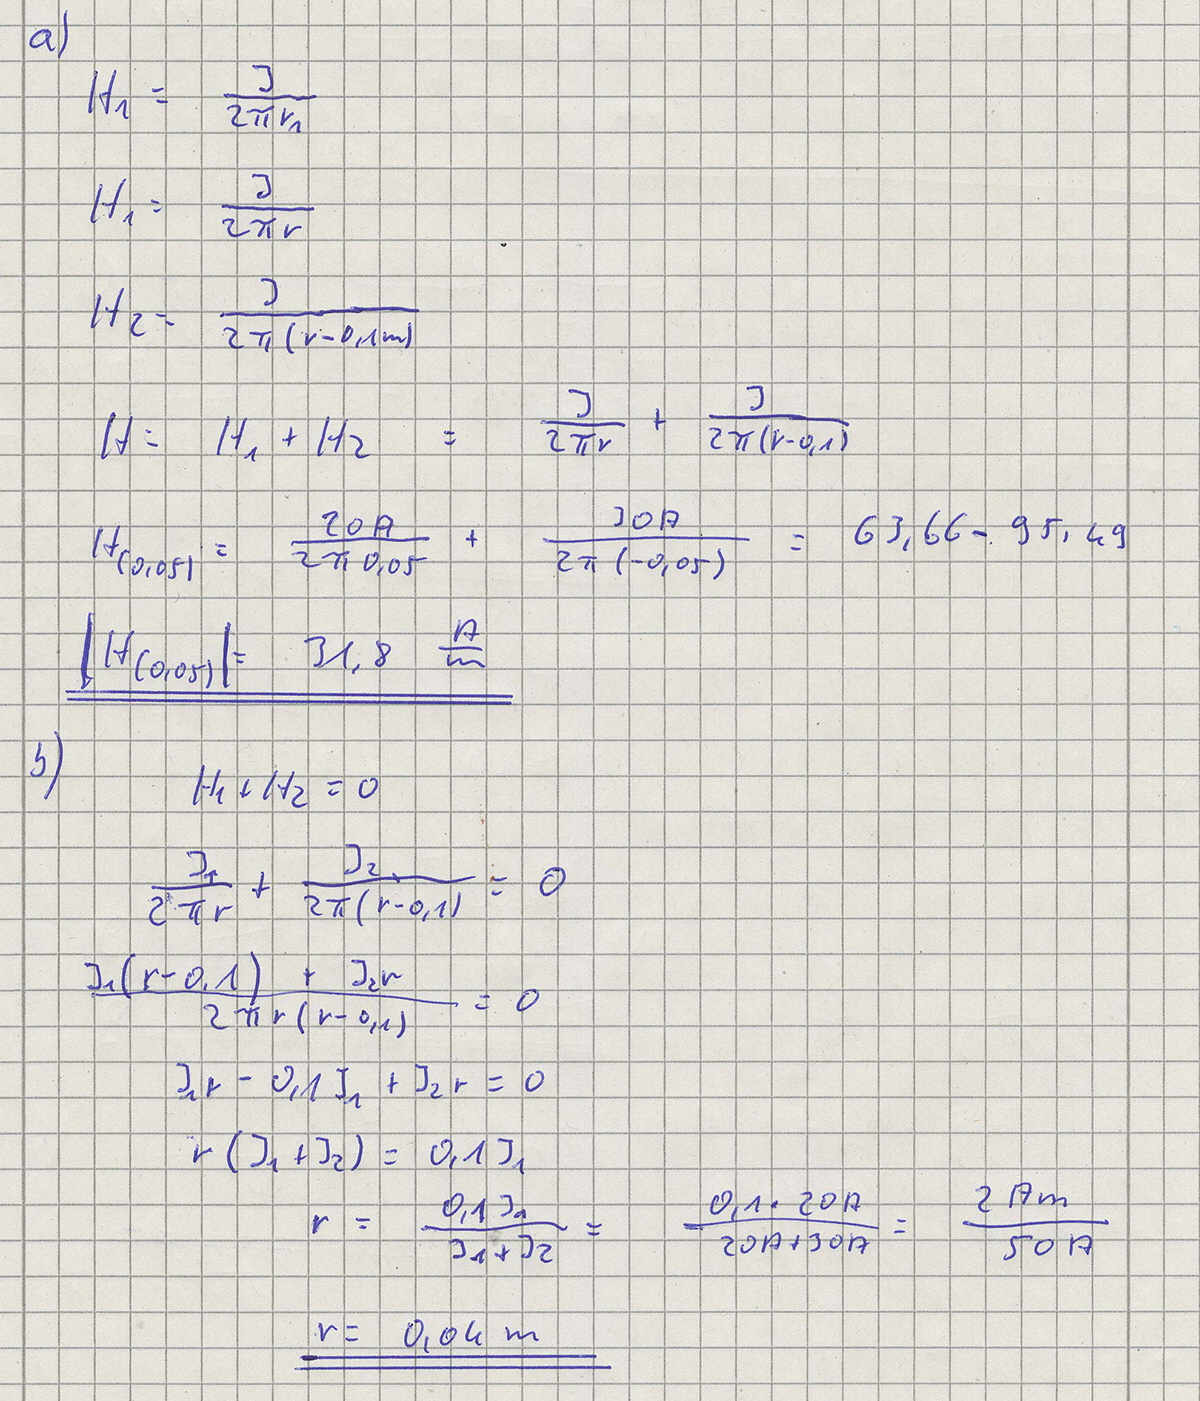 a)
H₁ = I / 2πr₁
H₁ = I / 2πr
H₂ = I / 2π(r-0,1m)
H = H₁ + H₂ = I / 2πr + I / 2π(r-0,1)
H(0,05) = 20A / 2π0,05 + 30A / 2π(-0,05) = 63,66 - 95,49
|H(0,05)| = 31,8 A/m
b)
H₁ + H₂ = 0
I₁ / 2πr + I₂ / 2π(r-0,1) = 0
I₁(r-0,1) + I₂r / 2πr(r-0,1) = 0
I₁r - 0,1I₁ + I₂r = 0
r(I₁+I₂) = 0,1I₁
r = 0,1I₁ / I₁+I₂ = 0,1·20A / 20A+30A = 2Am / 50A
r = 0,04 m